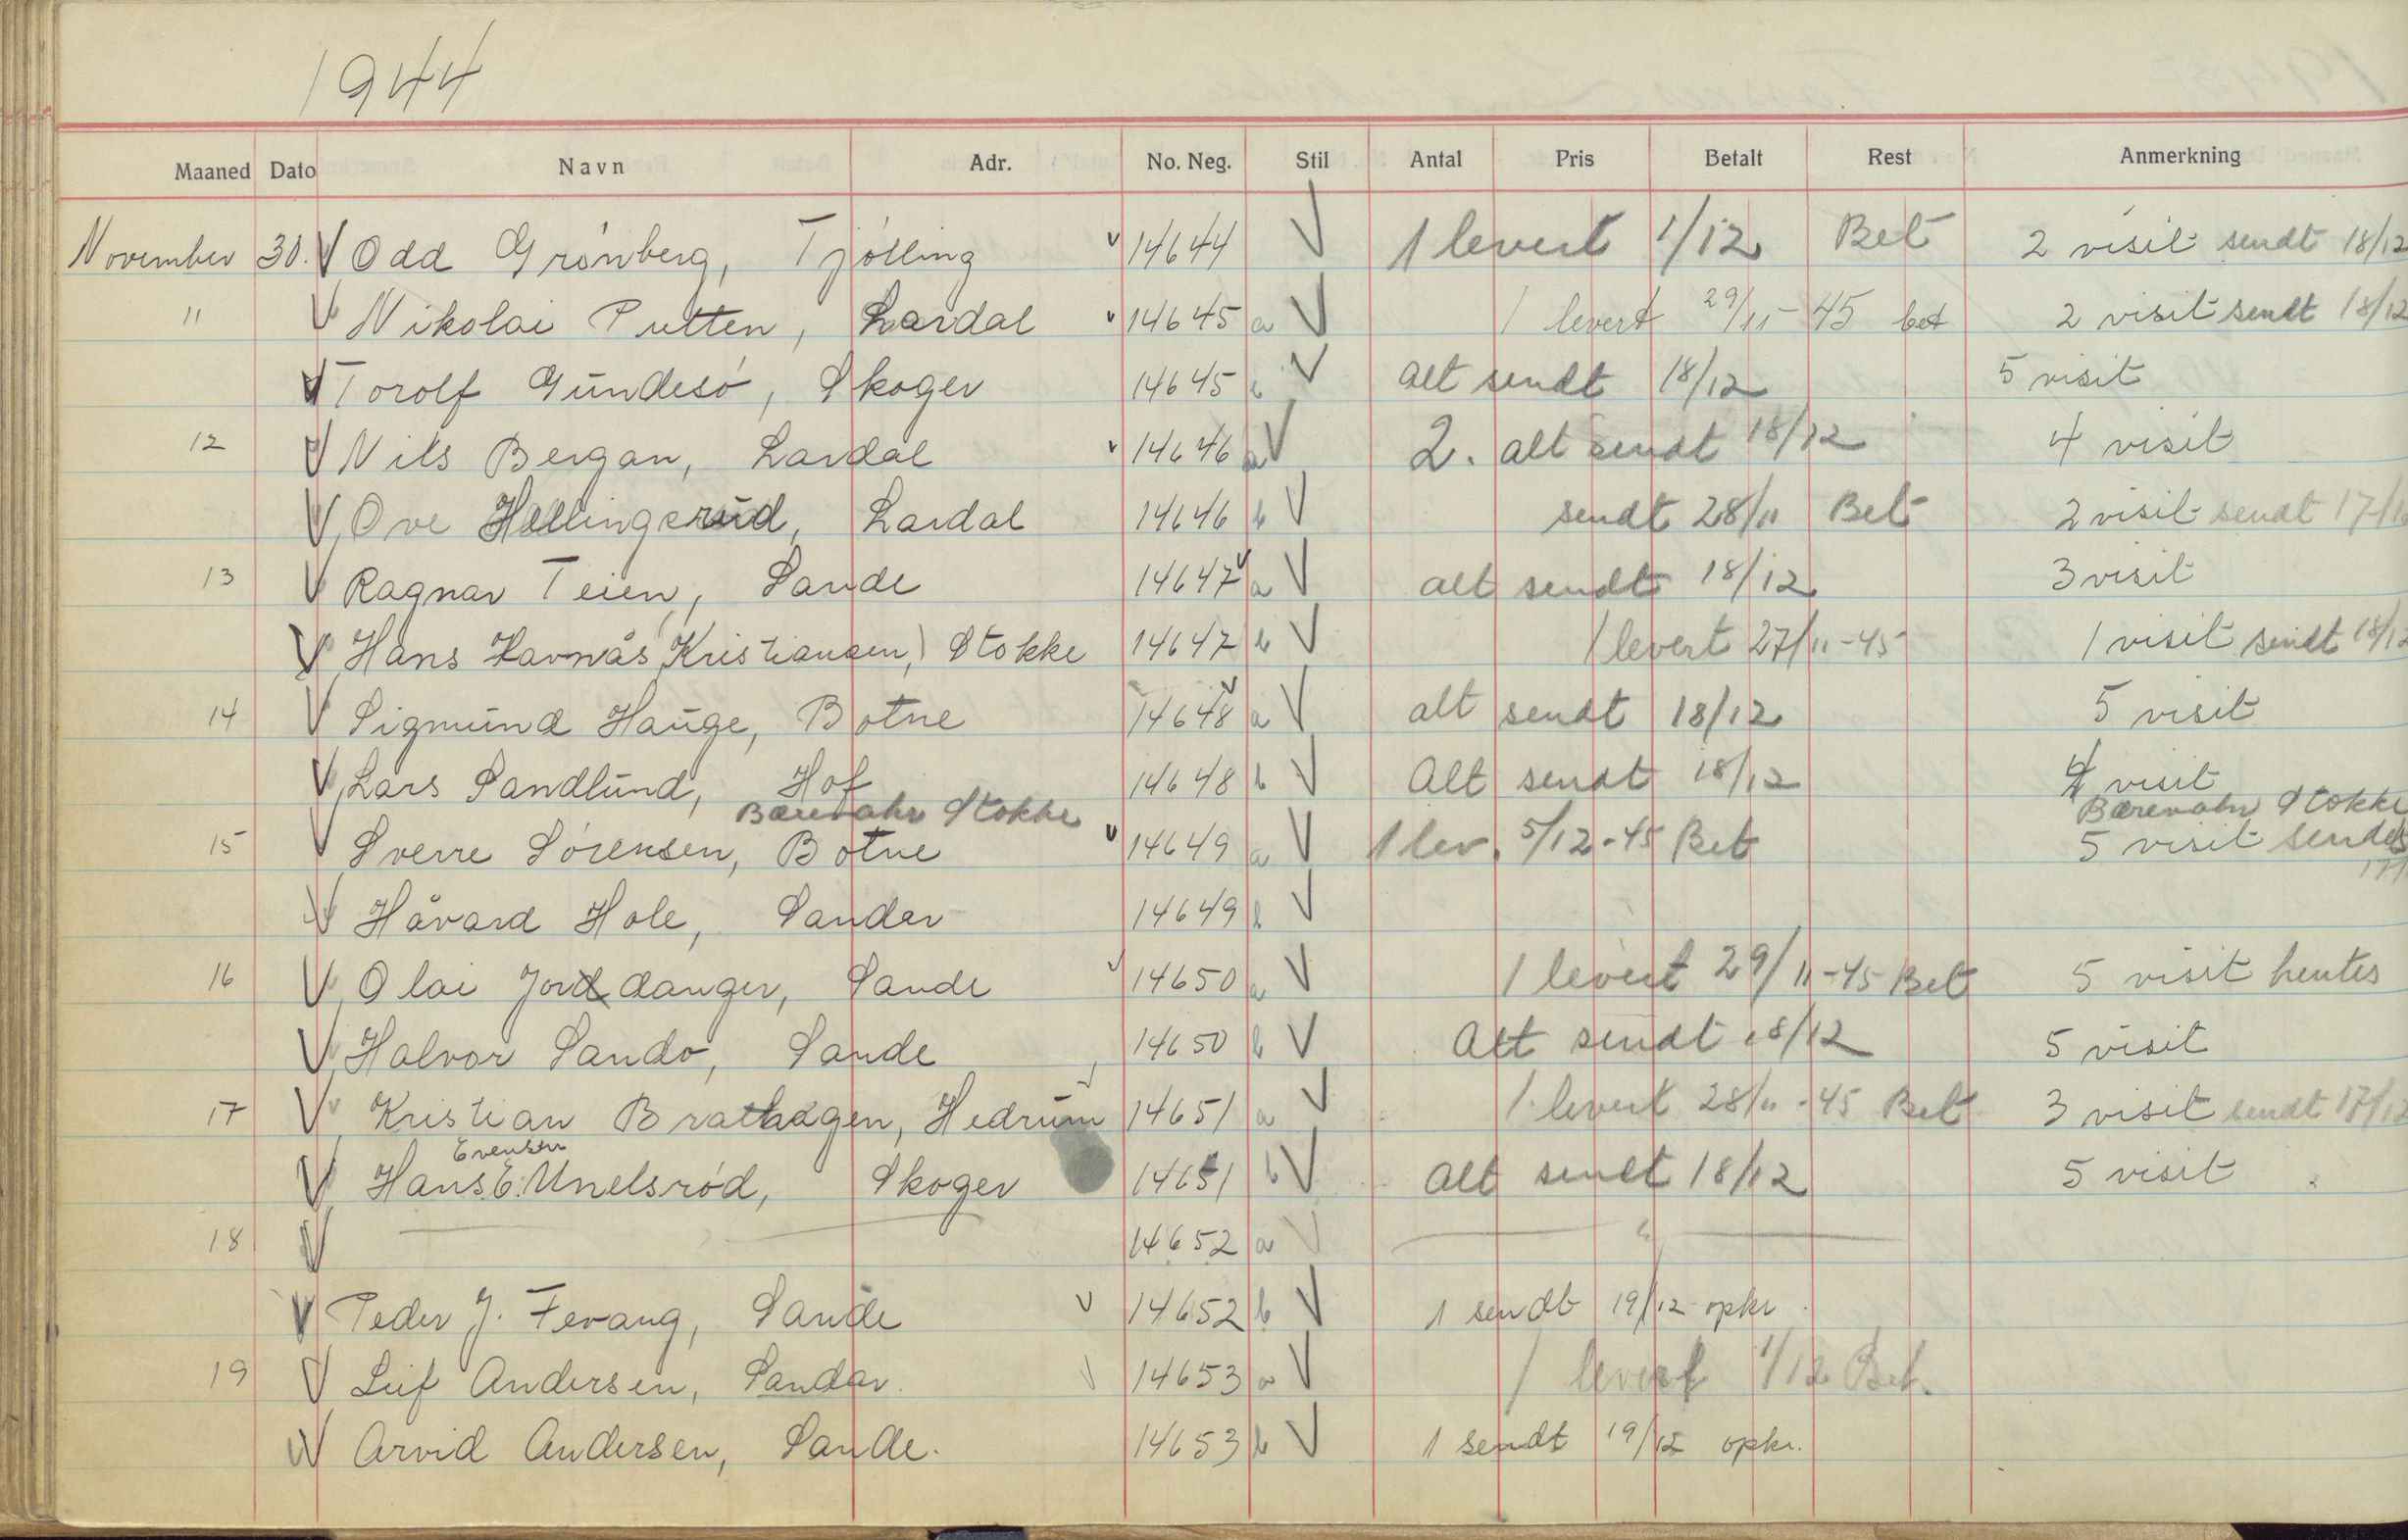 1944
Maaned Dato Navn Adr. No. Neg. Stil Antal Pris Betalt Rest Anmerkning
November 30. V Odd Grönberg, Tjölling v 14644 V 1 levert 1/12 Bet 2 visit sendt 18/12
" V Nikolai Putten, Lardal v 14645 a V 1 levert 29/11-45 bet 2 visit sendt 18/12
V Torolf Gundesö, Skoger 14645 b V alt sendt 18/12 5 visit
12 V Nils Bergan, Lardal v 14646 a V 2. alt sendt 18/12 4 visit
V Ove Hellingerud, Lardal 14646 b V sendt 28/11 Bet 2 visit sendt 17/12
13 V Ragnar Teien, Sande 14647 v a V alt sendt 18/12 3 visit
V Hans Havnås Kristiansen, Stokke 14647 b V 1 levert 27/11-45 1 visit sendt 18/12
14 V Sigmund Hauge, Botne v 14648 a V alt sendt 18/12 5 visit
V Lars Sandlund, Hof 14648 b V Alt sendt 18/12 4 visit
Bærevahr Stokke Bærevahr Stokke
15 V Sverre Sörensen, Botne v 14649 a V 1 lev. 5/12-45 Bet 5 visit sendes
17/
V Håvard Hole, Sandar 14649 b V
16 V Olai Jorddanger, Sande v 14650 a V 1 levert 29/11-45 Bet 5 visit hentes
V Halvor Sando, Sande 14650 b V Alt sendt 18/12 5 visit
17 V Kristian Brathagen, Hedrum v 14651 a V 1 levert 28/11-45 Bet 3 visit sendt 17/12
Evensen
V Hans E. Unelsröd, Skoger 14651 b V Alt sendt 18/12 5 visit
18 V 14652 a V "
V Peder J. Fevang, Sande v 14652 b V 1 sendt 19/12 opkr.
19 V Leif Andersen, Sandar. V 14653 a V 1 levert 1/12 Bet.
V Arvid Andersen, Sande. 14653 b V 1 sendt 19/12 opkr.